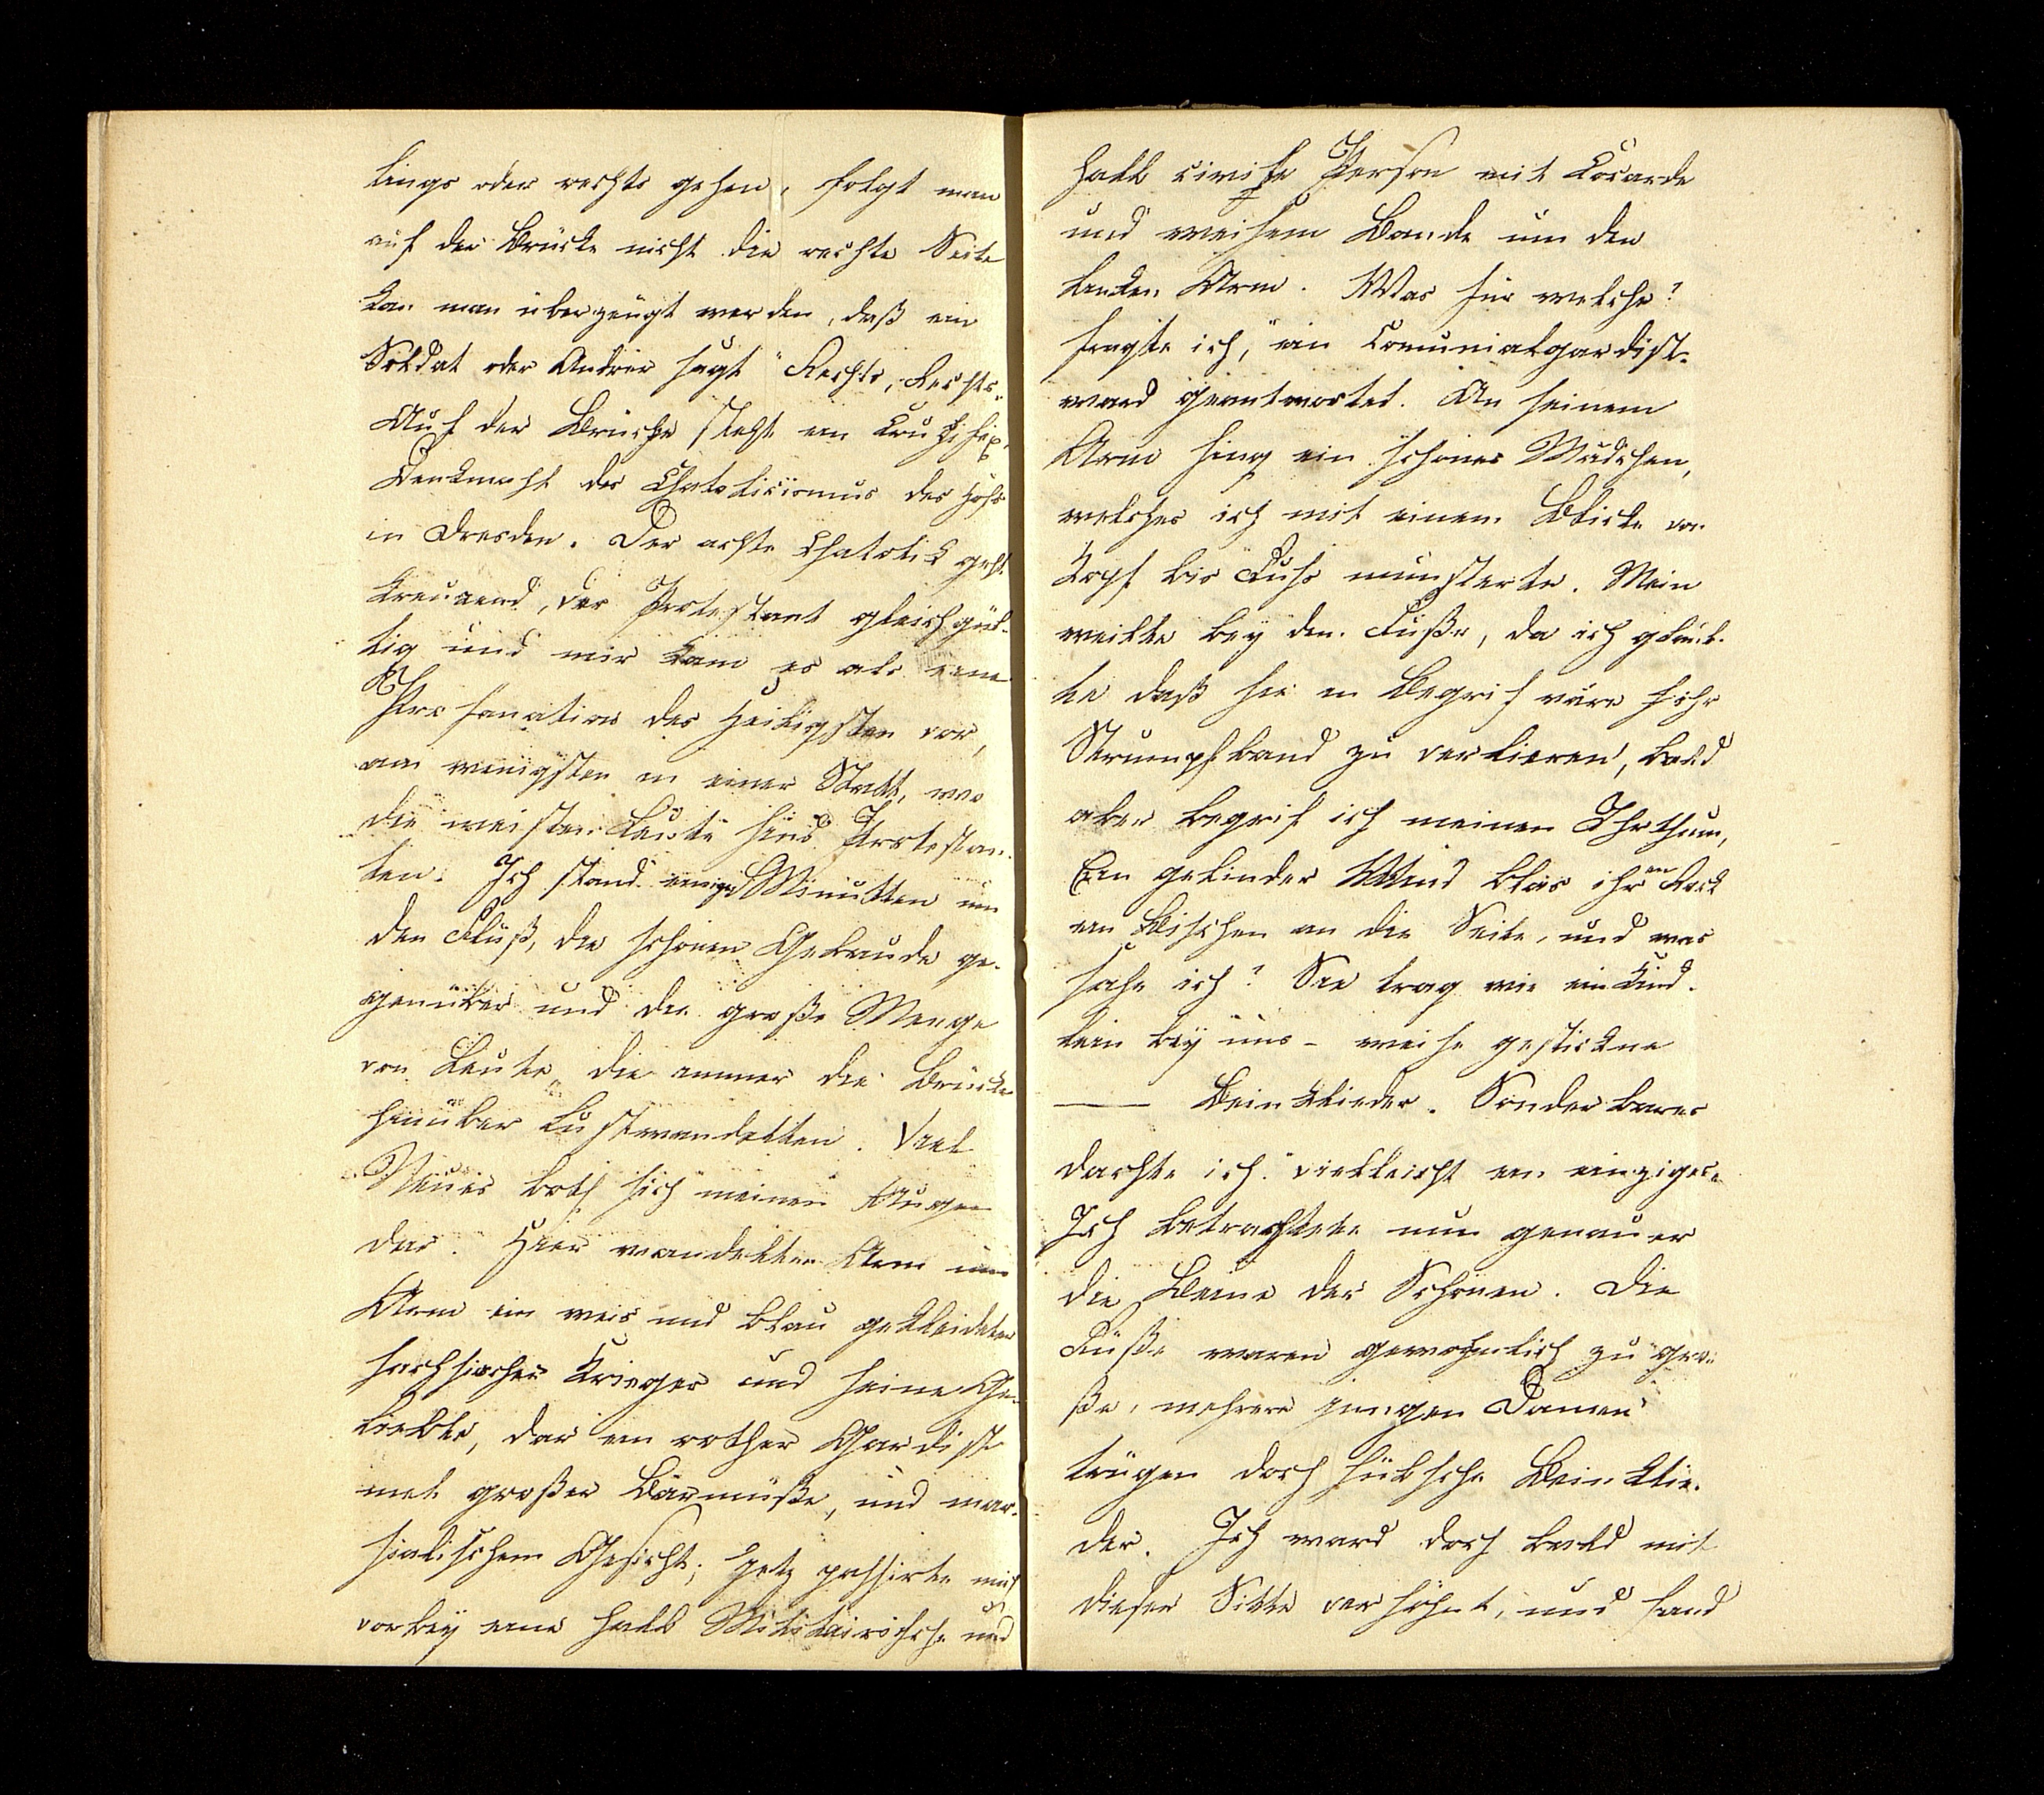 lings oder rechts gehen, folgt man
auf der Brücke nicht die rechte Seite
kan man überzeugt werden, daß ein
Soldat oder Andrer sagt "Rechts, Rechts"
Auf der Brücke steht ein Cruzifix,
Denkmahl des Chatolicismus des Hofs
in Dresden. Der achte Chatolick geht
kreuzend, der Protestant gleichgül-
tig und mir kam es als eine
Profanation des Heiligsten vor,
am wenigsten in einer Stadt, wo
die meisten Leute sind Protestan-
ten. Ich stand einige Minutten um
den Fluß, die schönen Gebaude ge-
genüber und die große Menge
von Leute die immer die Brücke
hinüber Lustwandelten. Viel
Neues both sich meinen Augen
dar. Hier wandelten Arm um
Arm ein weis und blau gekleideter
sachsischer Krieger und seine Ge-
liebte, dar ein rother Gardist
met großer Bärmüße, und mar-
sialischem Gesicht; Jetz passirte mich
vorbey eine halb Militairische und
halb civisle Person mit Cocarde
und weisem Bande um den
linken Arm. Was für welche?
fragte ich, "ein Comunialgardist"
ward geantwortet. An seinem
Arm hing ein schönes Mädchen,
welches ich mit einem Blicke von
Kopf bis Fuss munsterte. Mein
weilte bey den Fuße, da ich glaub-
te daß sie in Begrif wäre ihr
Strumpfband zu verlieren, bald
aber begrif ich meinen Ihrthum,
Ein gelinder Wind blas ihren Rock
ein Bischen an die Seite, und was
sahe ich? Sie trag wie ein Kind-
lein bey uns - weise gestickne
—— Beinkleider. Sonderbares
dachte ich "vielleicht ein einziges"
Ich betrachtete nun genauer
die Beine der Schönen. Die
Füße waren gewohnlich zu gro-
ße, mehrere jungen Damen
trugen doch hübsche Beinklie-
der. Ich ward doch bald mit
dieser Sitte versöhnt, und fand